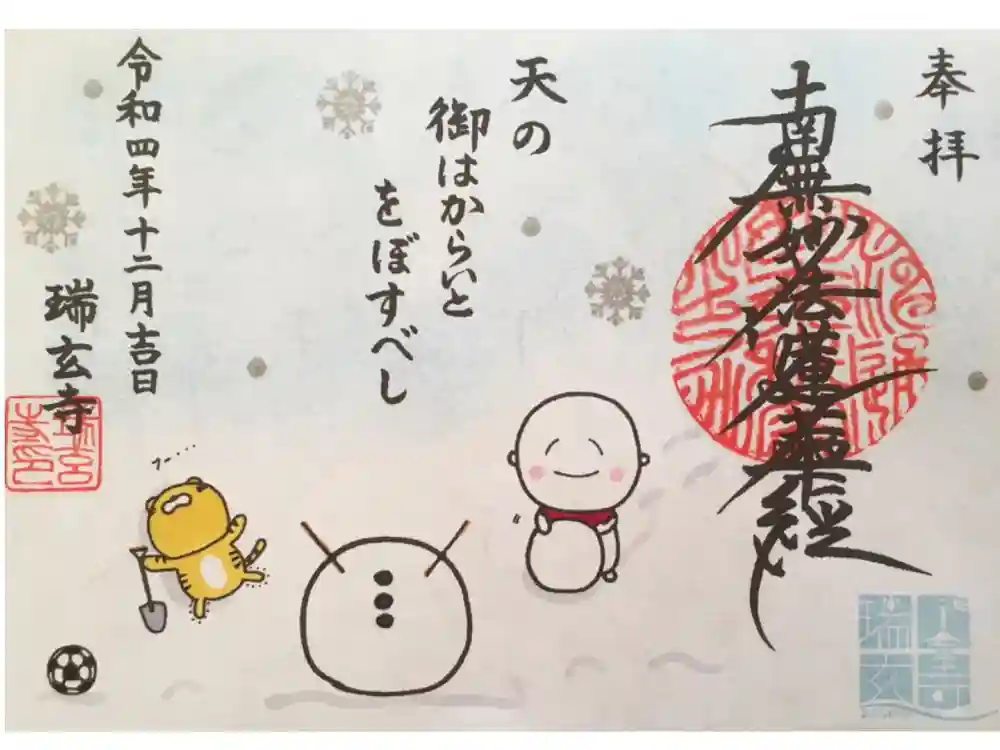 奉拝
南無妙法蓮華経
天の
御はからいと
をぼすべし
令和四年十二月吉日
瑞玄寺